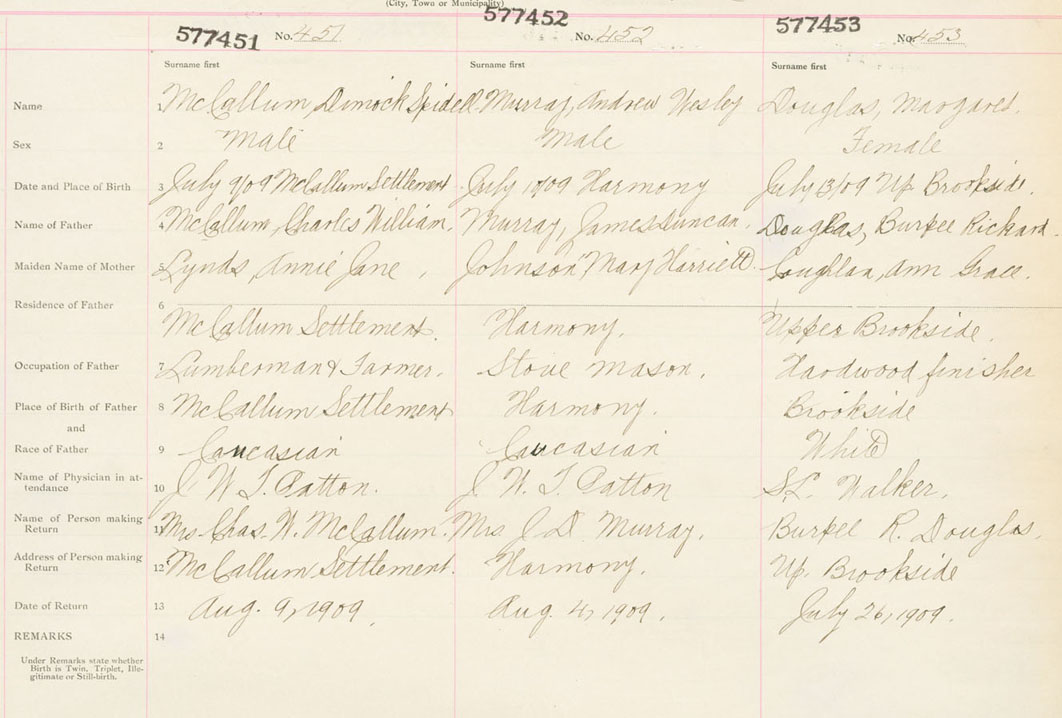 (City, Town or Municipality)
577451 No. 451 577452 No. 452 577453 No. 453
Surname first Surname first Surname first
Name 1 McCallum Dimock Spidell. Murray, Andrew Wesley Douglas, Margaret.
Sex 2 Male Male Female
Date and Place of Birth 3 July 9/09 McCallum Settlement July 09 Harmony July 13/09 Up. Brookside.
Name of Father 4 McCallum, Charles William. Murray, James Duncan. Douglas, Burpee Richard.
Maiden Name of Mother 5 Lynds, Annie Jane, Johnson, Mary Harriett Coughlan, Ann Grace.
Residence of Father 6
McCallum Settlement. Harmony. Upper Brookside.
Occupation of Father 7 Lumberman & Farmer. Stone mason. Hardwood finisher
Place of Birth of Father 8 McCallum Settlement Harmony. Brookside
and
Race of Father 9 Caucasian Caucasian White
Name of Physician in at-
tendance 10 J W. T. Patton. J. W. T. Patton S.L. Walker.
Name of Person making
Return 11 Mrs. Chas. W. McCallum. Mrs. J. D. Murray. Burpee R. Douglas.
Address of Person making
Return 12 McCallum Settlement. Harmony. Up. Brookside
Date of Return 13 Aug. 9, 1909. Aug. 4, 1909. July 26, 1909.
REMARKS 14
Under Remarks state whether
Birth is Twin, Triplet, Ille-
gitimate or Still-birth.